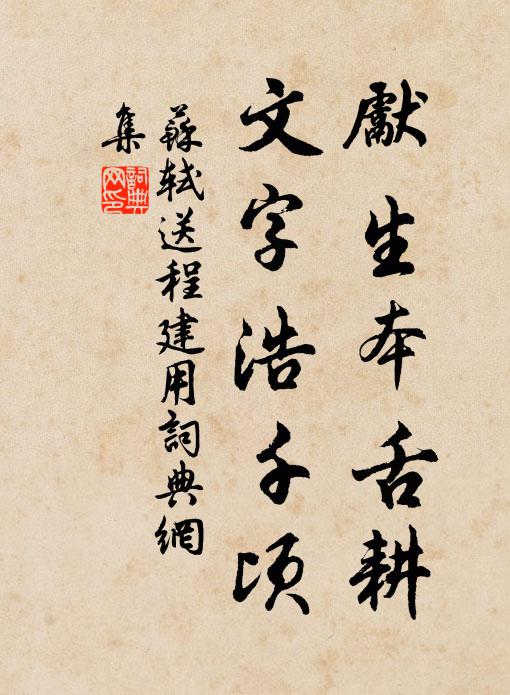 獻生本舌耕
文字浩千頃
蘇軾送程建用詞典網
集
詞典
网印